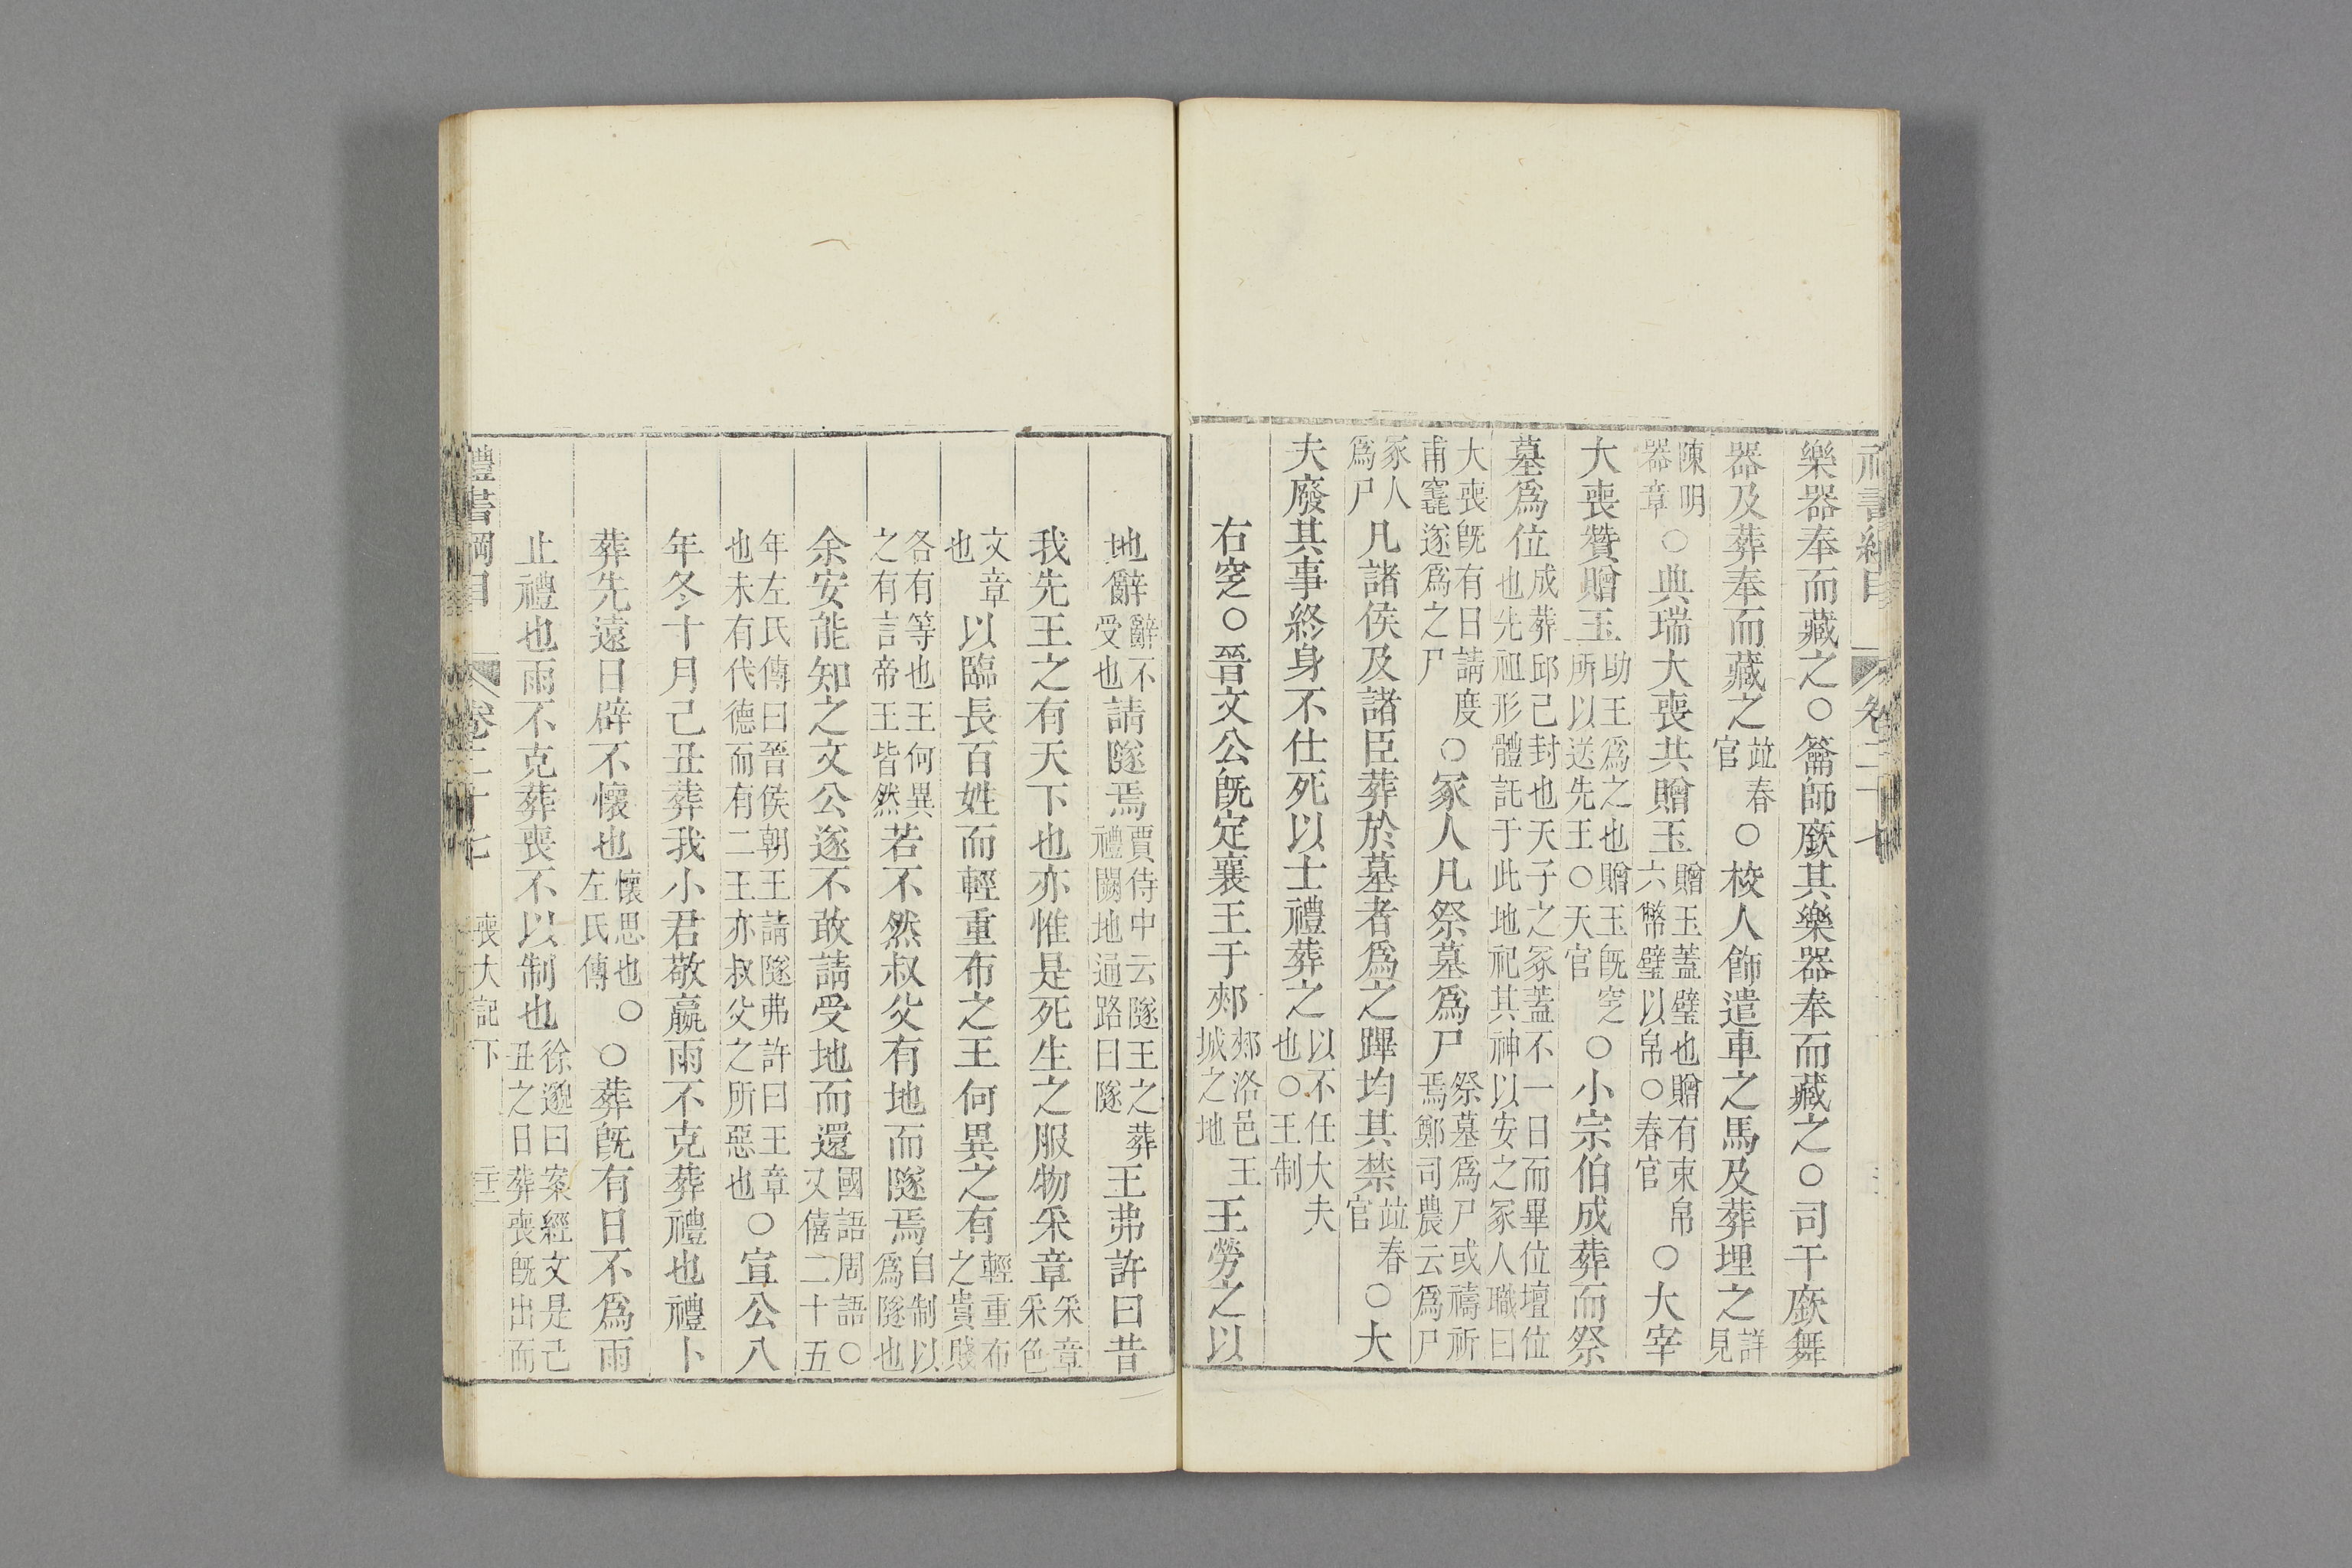 樂器奉而藏之○籥師廞其樂器奉而藏之○司干廞舞
器及葬奉而藏之竝春官○校人飾遣車之馬及葬埋之詳見
陳明器章○典瑞大喪共贈玉贈玉蓋璧也贈有束帛六幣璧以帛○春官○大宰
大喪贊贈玉助王爲之也贈玉旣窆所以送先王○天官○小宗伯成葬而祭
墓爲位成葬邱已封也天子之冢蓋不一日而畢位壇位也先祖形體託于此地祀其神以安之冢人職曰
大喪旣有日請度甫竁遂爲之尸○冢人凡祭墓爲尸祭墓爲尸或禱祈焉鄭司農云爲尸
冢人爲尸凡諸侯及諸臣葬於墓者爲之蹕均其禁竝春官○大
夫廢其事終身不仕死以士禮葬之以不任大夫也○王制
右窆○晉文公旣定襄王于郟郟洛邑王城之地王勞之以
地辭辭不受也請隧焉賈侍中云隧王之葬禮闕地通路曰隧王弗許曰昔
我先王之有天下也亦惟是死生之服物采章采章采色
文章也以臨長百姓而輕重布之王何異之有輕重布之貴賤
各有等也王何異之有言帝王皆然若不然叔父有地而隧焉自制以爲隧也
余安能知之文公遂不敢請受地而還國語周語○又僖二十五
年左氏傳曰晉侯朝王請隧弗許曰王章也未有代德而有二王亦叔父之所惡也○宣公八
年冬十月己丑葬我小君敬嬴雨不克葬禮也禮卜
葬先遠日辟不懷也懷思也○左氏傳○葬旣有日不爲雨
止禮也雨不克葬喪不以制也徐邈曰案經文是己丑之日葬喪旣出而
禮書綱目 卷二十七 喪大記下